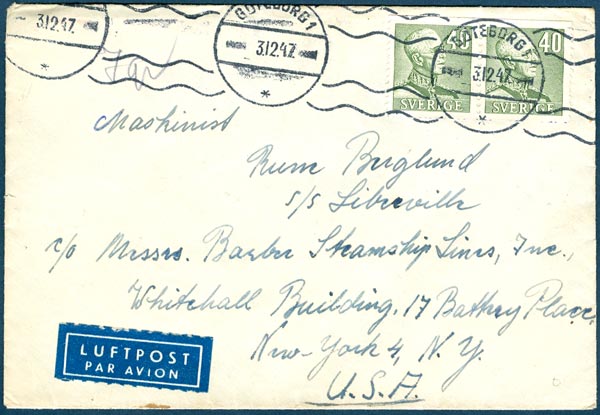 3.12.47.
GÖTEBORG 1
3.12.47.
GÖTEBORG 1
3.12.47.
40 40
SVERIGE SVERIGE
Maskinist
Rune Berglund
s/s Libreville
c/o Messrs. Barber Steamship Lines, Inc.,
Whitehall Building, 17 Battery Place,
New-York 4, N. Y.
U.S.A.
LUFTPOST
PAR AVION